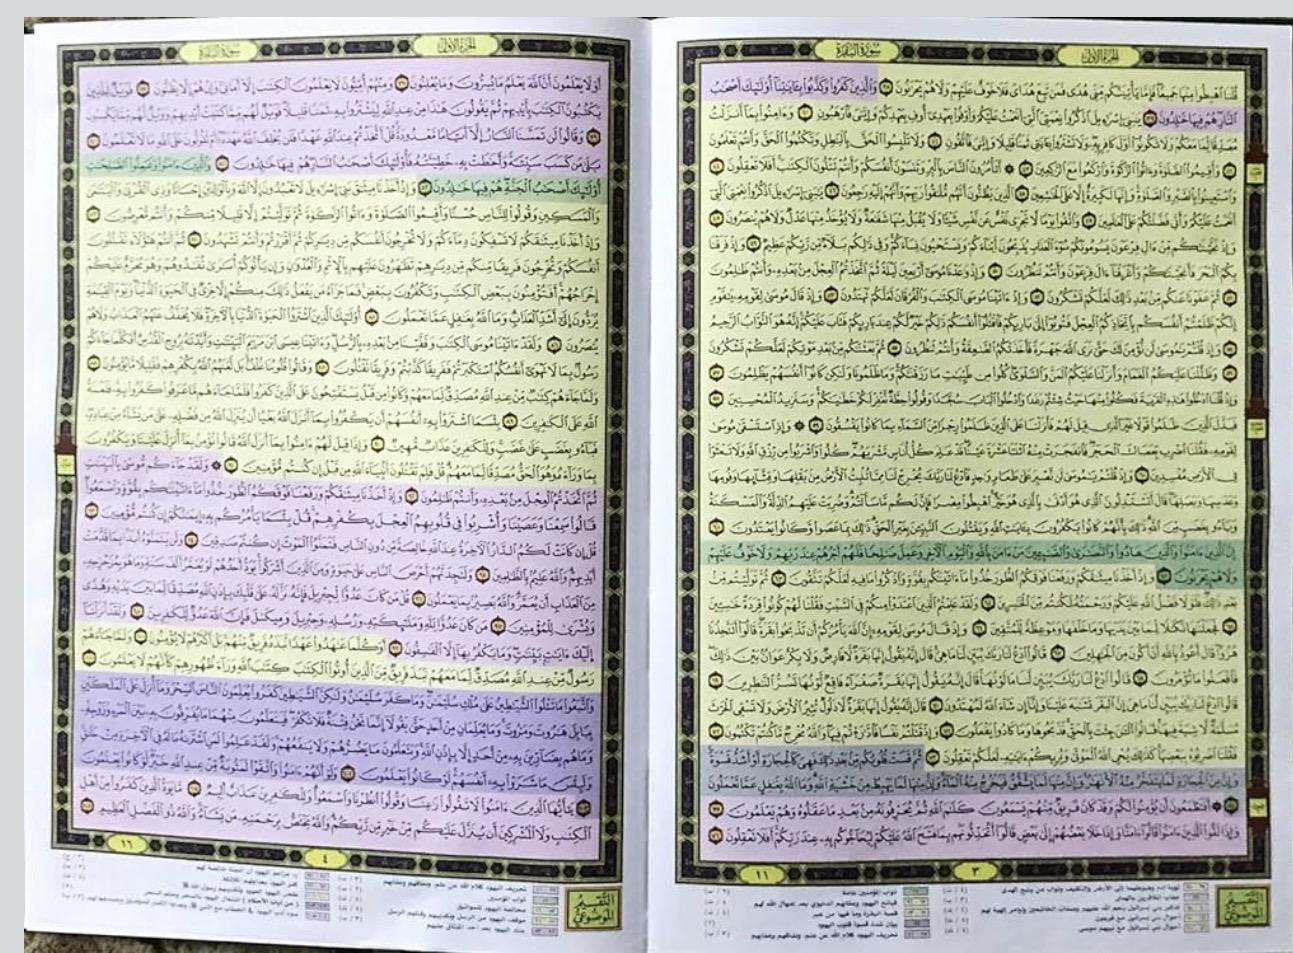 الجزء الأول
سورة البقرة
قلنا اهبطوا منها جميعا فإما يأتينكم مني هدى فمن تبع هداي فلا خوف عليهم ولا هم يحزنون ٣٨ والذين كفروا وكذبوا بآياتنا أولئك أصحاب
النار هم فيها خالدون ٣٩ يبني إسرءيل اذكروا نعمتي التي أنعمت عليكم وأوفوا بعهدي أوف بعهدكم وإيي فارهبون ٤٠ وءامنوا بما أنزلت
مصدقا لما معكم ولا تكونوا أول كافر به ولا تشتروا بآياتي ثمنا قليلا وإيي فاتقون ٤١ ولا تلبسوا الحق بالباطل وتكتموا الحق وأنتم تعلمون
٤٢ وأقيموا الصلوة وءاتوا الزكوة واركعوا مع الركعين ٤٣ أتأمرون الناس بالبر وتنسون أنفسكم وأنتم تتلون الكتب أفلا تعقلون ٤٤
واستعينوا بالصبر والصلوة وإنها لكبيرة إلا على الخشعين ٤٥ الذين يظنون أنهم ملقوا ربهم وأنهم إليه رجعون ٤٦ يبني إسرءيل اذكروا نعمتي التي
أنعمت عليكم وأني فضلتكم على العلمين ٤٧ واتقوا يوما لا تجزي نفس عن نفس شيئا ولا يقبل منها شفعة ولا يؤخذ منها عدل ولا هم ينصرون ٤٨
وإذ نجينكم من ءال فرعون يسومونكم سوء العذاب يذبحون أبناءكم ويستحيون نساءكم وفي ذلكم بلاء من ربكم عظيم ٤٩ وإذ فرقنا
بكم البحر فأنجينكم وأغرقنا ءال فرعون وأنتم تنظرون ٥٠ وإذ وعدنا موسى أربعين ليلة ثم اتخذتم العجل من بعده وأنتم ظلمون
٥١ ثم عفونا عنكم من بعد ذلك لعلكم تشكرون ٥٢ وإذ ءاتينا موسى الكتب والفرقان لعلكم تهتدون ٥٣ وإذ قال موسى لقومه يقوم
إنكم ظلمتم أنفسكم باتخاذكم العجل فتوبوا إلى بارئكم فاقتلوا أنفسكم ذلكم خير لكم عند بارئكم فتاب عليكم إنه هو التواب الرحيم
٥٤ وإذ قلتم يموسى لن نؤمن لك حتى نرى الله جهرة فأخذتكم الصعقة وأنتم تنظرون ٥٥ ثم بعثنكم من بعد موتكم لعلكم تشكرون
٥٦ وظللنا عليكم الغمام وأنزلنا عليكم المن والسلوى كلوا من طيبت ما رزقنكم وما ظلمونا ولكن كانوا أنفسهم يظلمون ٥٧
وإذ قلنا ادخلوا هذه القرية فكلوا منها حيث شئتم رغدا وادخلوا الباب سجدا وقولوا حطة نغفر لكم خطيكم وسنزيد المحسنين ٥٨
فبدل الذين ظلموا قولا غير الذي قيل لهم فأنزلنا على الذين ظلموا رجزا من السماء بما كانوا يفسقون ٥٩ وإذ استسقى موسى
لقومه فقلنا اضرب بعصاك الحجر فانفجرت منه اثنتا عشرة عينا قد علم كل أناس مشربهم كلوا واشربوا من رزق الله ولا تعثوا
في الأرض مفسدين ٦٠ وإذ قلتم يموسى لن نصبر على طعام وحد فادع لنا ربك يخرج لنا مما تنبت الأرض من بقلها وقثائها وفومها
وعدسها وبصلها قال أتستبدلون الذي هو أدنى بالذي هو خير اهبطوا مصرا فإن لكم ما سألتم وضربت عليهم الذلة والمسكنة
وباءو بغضب من الله ذلك بأنهم كانوا يكفرون بآيت الله ويقتلون النبين بغير الحق ذلك بما عصوا وكانوا يعتدون ٦١
إن الذين ءامنوا والذين هادوا والنصرى والصبين من ءامن بالله واليوم الأخر وعمل صلحا فلهم أجرهم عند ربهم ولا خوف عليهم
ولا هم يحزنون ٦٢ وإذ أخذنا ميثقكم ورفعنا فوقكم الطور خذوا ما ءاتينكم بقوة واذكروا ما فيه لعلكم تتقون ٦٣ ثم توليتم من
بعد ذلك فلولا فضل الله عليكم ورحمته لكنتم من الخسرين ٦٤ ولقد علمتم الذين اعتدوا منكم في السبت فقلنا لهم كونوا قردة خسين
٦٥ فجعلنها نكلا لما بين يديها وما خلفها وموعظة للمتقين ٦٦ وإذ قال موسى لقومه إن الله يأمركم أن تذبحوا بقرة قالوا أتتخذنا
هزوا قال أعوذ بالله أن أكون من الجهلين ٦٧ قالوا ادع لنا ربك يبين لنا ما هي قال إنه يقول إنها بقرة لا فارض ولا بكر عوان بين ذلك
فافعلوا ما تؤمرون ٦٨ قالوا ادع لنا ربك يبين لنا ما لونها قال إنه يقول إنها بقرة صفراء فاقع لونها تسر النظرين ٦٩
قالوا ادع لنا ربك يبين لنا ما هي إن البقر تشبه علينا وإنا إن شاء الله لمهتدون ٧٠ قال إنه يقول إنها بقرة لا ذلول تثير الأرض ولا تسقي الحرث
مسلمة لا شية فيها قالوا الن جئت بالحق فذبحوها وما كادوا يفعلون ٧١ وإذ قتلتم نفسا فادرءتم فيها والله مخرج ما كنتم تكتمون ٧٢
فقلنا اضربوه ببعضها كذلك يحي الله الموتى ويريكم ءايته لعلكم تعقلون ٧٣ ثم قست قلوبكم من بعد ذلك فهي كالحجارة أو أشد قسوة
وإن من الحجارة لما يتفجر منه الأنهر وإن منها لما يشقق فيخرج منه الماء وإن منها لما يهبط من خشية الله وما الله بغفل عما تعملون
٧٤ أفتطمعون أن يؤمنوا لكم وقد كان فريق منهم يسمعون كلم الله ثم يحرفونه من بعد ما عقلوه وهم يعلمون ٧٥
وإذا لقوا الذين ءامنوا قالوا ءامنا وإذا خلا بعضهم إلى بعض قالوا أتحدثونهم بما فتح الله عليكم ليحاجوكم به عند ربكم أفلا تعقلون ٧٦
٣
١١
التقسيم الموضوعي
توبة آدم وهبوطهما إلى الأرض والتكليف وثواب من يتبع الهدى
عقاب الكافرين بالهدى
أحوال بني إسرائيل مع فرعون
أحوال بني إسرائيل مع نبيهم موسى
ثواب المؤمنين عامة
قصة البقرة وما فيها من عبر
بيان شدة قسوة قلوب اليهود
تحريف اليهود كلام الله عن علم ونفاقهم ومقابهم
الجزء الأول
سورة البقرة
أولا يعلمون أن الله يعلم ما يسرون وما يعلنون ٧٧ ومنهم أميون لا يعلمون الكتب إلا أماني وإن هم إلا يظنون ٧٨ فويل للذين
يكتبون الكتب بأيديهم ثم يقولون هذا من عند الله ليشتروا به ثمنا قليلا فويل لهم مما كتبت أيديهم وويل لهم مما يكسبون
٧٩ وقالوا لن تمسنا النار إلا أياما معدودة قل أتخذتم عند الله عهدا فلن يخلف الله عهده أم تقولون على الله ما لا تعلمون ٨٠
بلى من كسب سيئة وأحطت به خطيئته فأولئك أصحب النار هم فيها خلدون ٨١ والذين ءامنوا وعملوا الصلحت
أولئك أصحب الجنة هم فيها خلدون ٨٢ وإذ أخذنا ميثق بني إسرءيل لا تعبدون إلا الله وبالولدين إحسانا وذي القربى واليتمى
والمسكين وقولوا للناس حسنا وأقيموا الصلوة وءاتوا الزكوة ثم توليتم إلا قليلا منكم وأنتم معرضون ٨٣
وإذ أخذنا ميثقكم لا تسفكون دماءكم ولا تخرجون أنفسكم من ديركم ثم أقررتم وأنتم تشهدون ٨٤ ثم أنتم هؤلاء تقتلون
أنفسكم وتخرجون فريقا منكم من ديرهم تظهرون عليهم بالإثم والعدون وإن يأتوكم أسرى تفدوهم وهو محرم عليكم
إخراجهم أفتؤمنون ببعض الكتب وتكفرون ببعض فما جزاء من يفعل ذلك منكم إلا خزي في الحيوة الدنيا ويوم القيمة
يردون إلى أشد العذاب وما الله بغفل عما تعملون ٨٥ أولئك الذين اشتروا الحيوة الدنيا بالأخرة فلا يخفف عنهم العذاب ولا هم
ينصرون ٨٦ ولقد ءاتينا موسى الكتب وقفينا من بعده بالرسل وءاتينا عيسى ابن مريم البينت وأيدنه بروح القدس أفكلما جاءكم
رسول بما لا تهوى أنفسكم استكبرتم ففريقا كذبتم وفريقا تقتلون ٨٧ وقالوا قلوبنا غلف بل لعنهم الله بكفرهم فقليلا ما يؤمنون ٨٨
ولما جاءهم كتب من عند الله مصدق لما معهم وكانوا من قبل يستفتحون على الذين كفروا فلما جاءهم ما عرفوا كفروا به فلعنة
الله على الكفرين ٨٩ بئسما اشتروا به أنفسهم أن يكفروا بما أنزل الله بغيا أن ينزل الله من فضله على من يشاء من عباده
فباءو بغضب على غضب وللكفرين عذاب مهين ٩٠ وإذا قيل لهم ءامنوا بما أنزل الله قالوا نؤمن بما أنزل علينا ويكفرون
بما وراءه وهو الحق مصدقا لما معهم قل فلم تقتلون أنبياء الله من قبل إن كنتم مؤمنين ٩١ ولقد جاءكم موسى بالبينت
ثم اتخذتم العجل من بعده وأنتم ظلمون ٩٢ وإذ أخذنا ميثقكم ورفعنا فوقكم الطور خذوا ما ءاتينكم بقوة واسمعوا
قالوا سمعنا وعصينا وأشربوا في قلوبهم العجل بكفرهم قل بئسما يأمركم به إيمنكم إن كنتم مؤمنين ٩٣
قل إن كانت لكم الدار الأخرة عند الله خالصة من دون الناس فتمنوا الموت إن كنتم صدقين ٩٤ ولن يتمنوه أبدا بما قدمت
أيديهم والله عليم بالظلمين ٩٥ ولتجدنهم أحرص الناس على حيوة ومن الذين أشركوا يود أحدهم لو يعمر ألف سنة وما هو بمزحزحه
من العذاب أن يعمر والله بصير بما يعملون ٩٦ قل من كان عدوا لجبريل فإنه نزله على قلبك بإذن الله مصدقا لما بين يديه وهدى
وبشرى للمؤمنين ٩٧ من كان عدوا لله وملئكته ورسله وجبريل وميكل فإن الله عدو للكفرين ٩٨ ولقد أنزلنا
إليك ءايت بينت وما يكفر بها إلا الفسقون ٩٩ أوكلما عهدوا عهدا نبذه فريق منهم بل أكثرهم لا يؤمنون ١٠٠ ولما جاءهم
رسول من عند الله مصدق لما معهم نبذ فريق من الذين أوتوا الكتب كتب الله وراء ظهورهم كأنهم لا يعلمون ١٠١
واتبعوا ما تتلوا الشيطين على ملك سليمن وما كفر سليمن ولكن الشيطين كفروا يعلمون الناس السحر وما أنزل على الملكين
ببابل هروت ومروت وما يعلمان من أحد حتى يقولا إنما نحن فتنة فلا تكفر فيتعلمون منهما ما يفرقون به بين المرء وزوجه
وما هم بضارين به من أحد إلا بإذن الله ويتعلمون ما يضرهم ولا ينفعهم ولقد علموا لمن اشترىه ما له في الأخرة من خلق
ولبئس ما شروا به أنفسهم لو كانوا يعلمون ١٠٢ ولو أنهم ءامنوا واتقوا لمثوبة من عند الله خير لو كانوا يعلمون
١٠٣ يأيها الذين ءامنوا لا تقولوا رعنا وقولوا انظرنا واسمعوا وللكفرين عذاب أليم ١٠٤ ما يود الذين كفروا من أهل
الكتب ولا المشركين أن ينزل عليكم من خير من ربكم والله يختص برحمته من يشاء والله ذو الفضل العظيم ١٠٥
٤
١٦
التقسيم الموضوعي
تحريف اليهود كلام الله عن علم ونفاقهم ومقابهم
ثواب المؤمنين
مخالفة اليهود للمواثيق
موقف اليهود من الرسل وتكذيبهم وقتلهم الرسل
عناد اليهود بعد أخذ الميثاق منهم